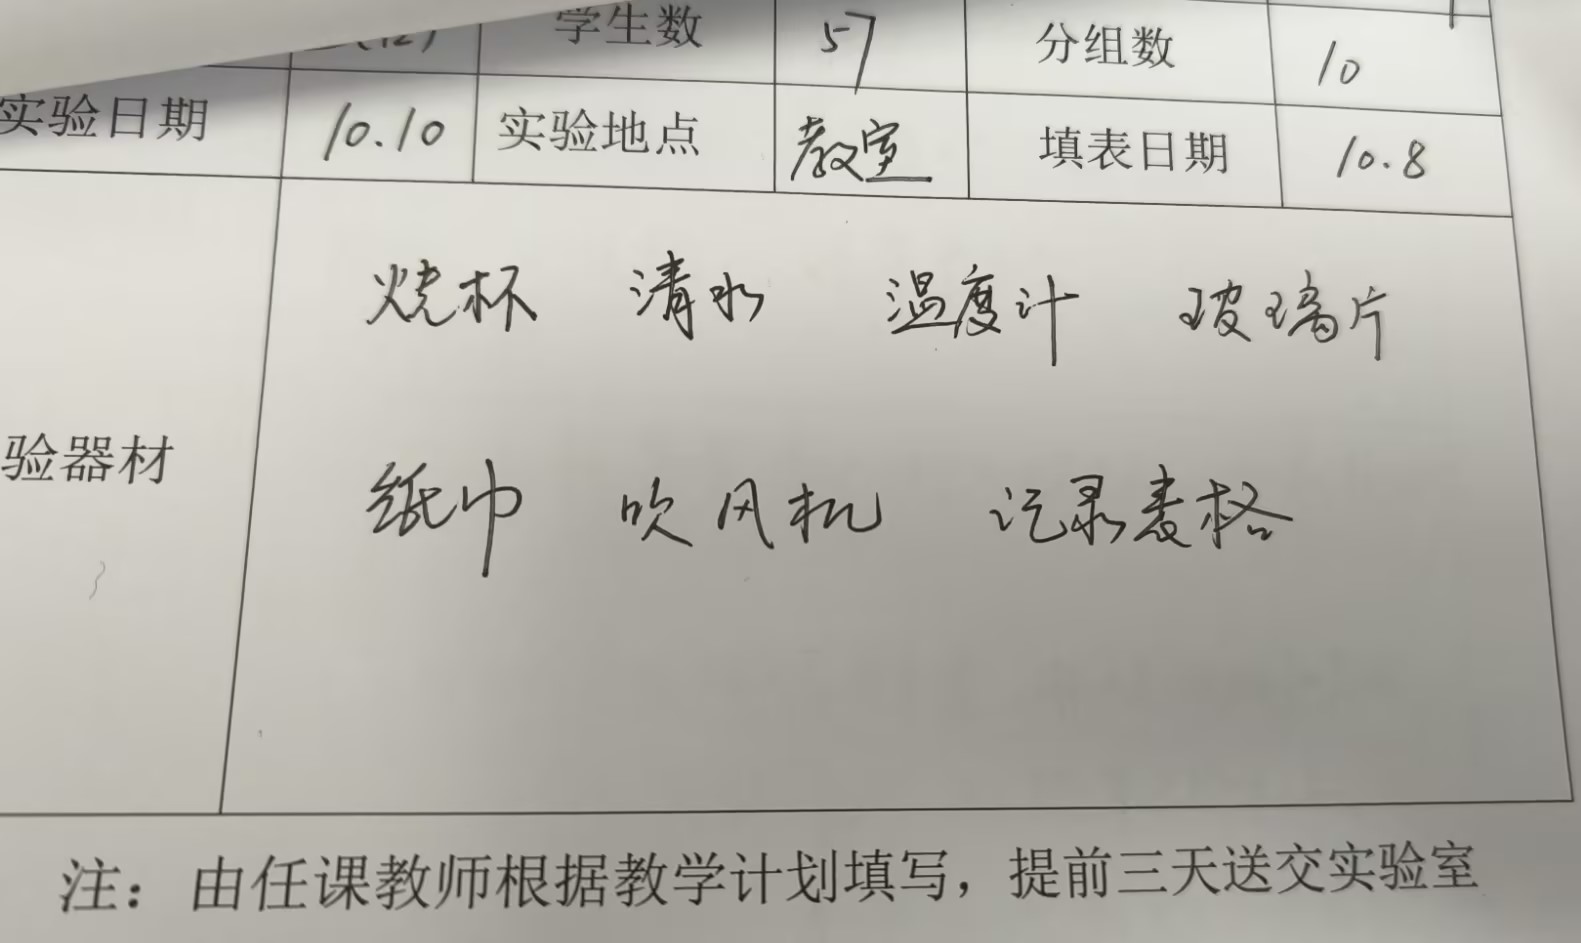 学生数 57 分组数 10
实验日期 10.10 实验地点 教室 填表日期 10.8
烧杯 清水 温度计 玻璃片
验器材
纸巾 吹风机 记录表格
注：由任课教师根据教学计划填写，提前三天送交实验室